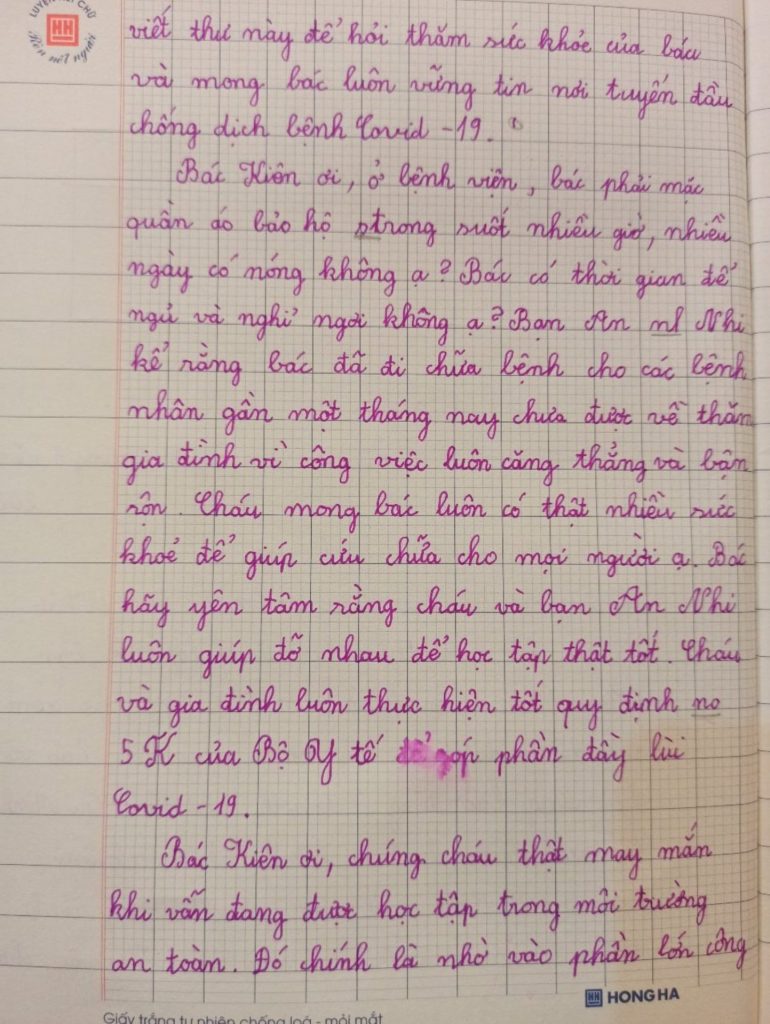 LUYỆN VIẾT CHỮ
HH
Rèn nết người
viết thư này để hỏi thăm sức khỏe của bác
và mong bác luôn vững tin nơi tuyến đầu
chống dịch bệnh Covid - 19.
Bác Kiên ơi, ở bệnh viện, bác phải mặc
quần áo bảo hộ strong suốt nhiều giờ, nhiều
ngày có nóng không ạ? Bác có thời gian để
ngủ và nghỉ ngơi không ạ? Bạn An nl Nhi
kể rằng bác đã đi chữa bệnh cho các bệnh
nhân gần một tháng nay chưa được về thăm
gia đình vì công việc luôn căng thẳng và bận
rộn. Cháu mong bác luôn có thật nhiều sức
khoẻ để giúp cứu chữa cho mọi người ạ. Bác
hãy yên tâm rằng cháu và bạn An Nhi
luôn giúp đỡ nhau để học tập thật tốt. Cháu
và gia đình luôn thực hiện tốt quy định no
5K của Bộ Y tế để góp phần đẩy lùi
Covid - 19.
Bác Kiên ơi, chúng cháu thật may mắn
khi vẫn đang được học tập trong môi trường
an toàn. Đó chính là nhờ vào phần lớn công
HH HONG HA
Giấy trắng tự nhiên chống loá - mỏi mắt